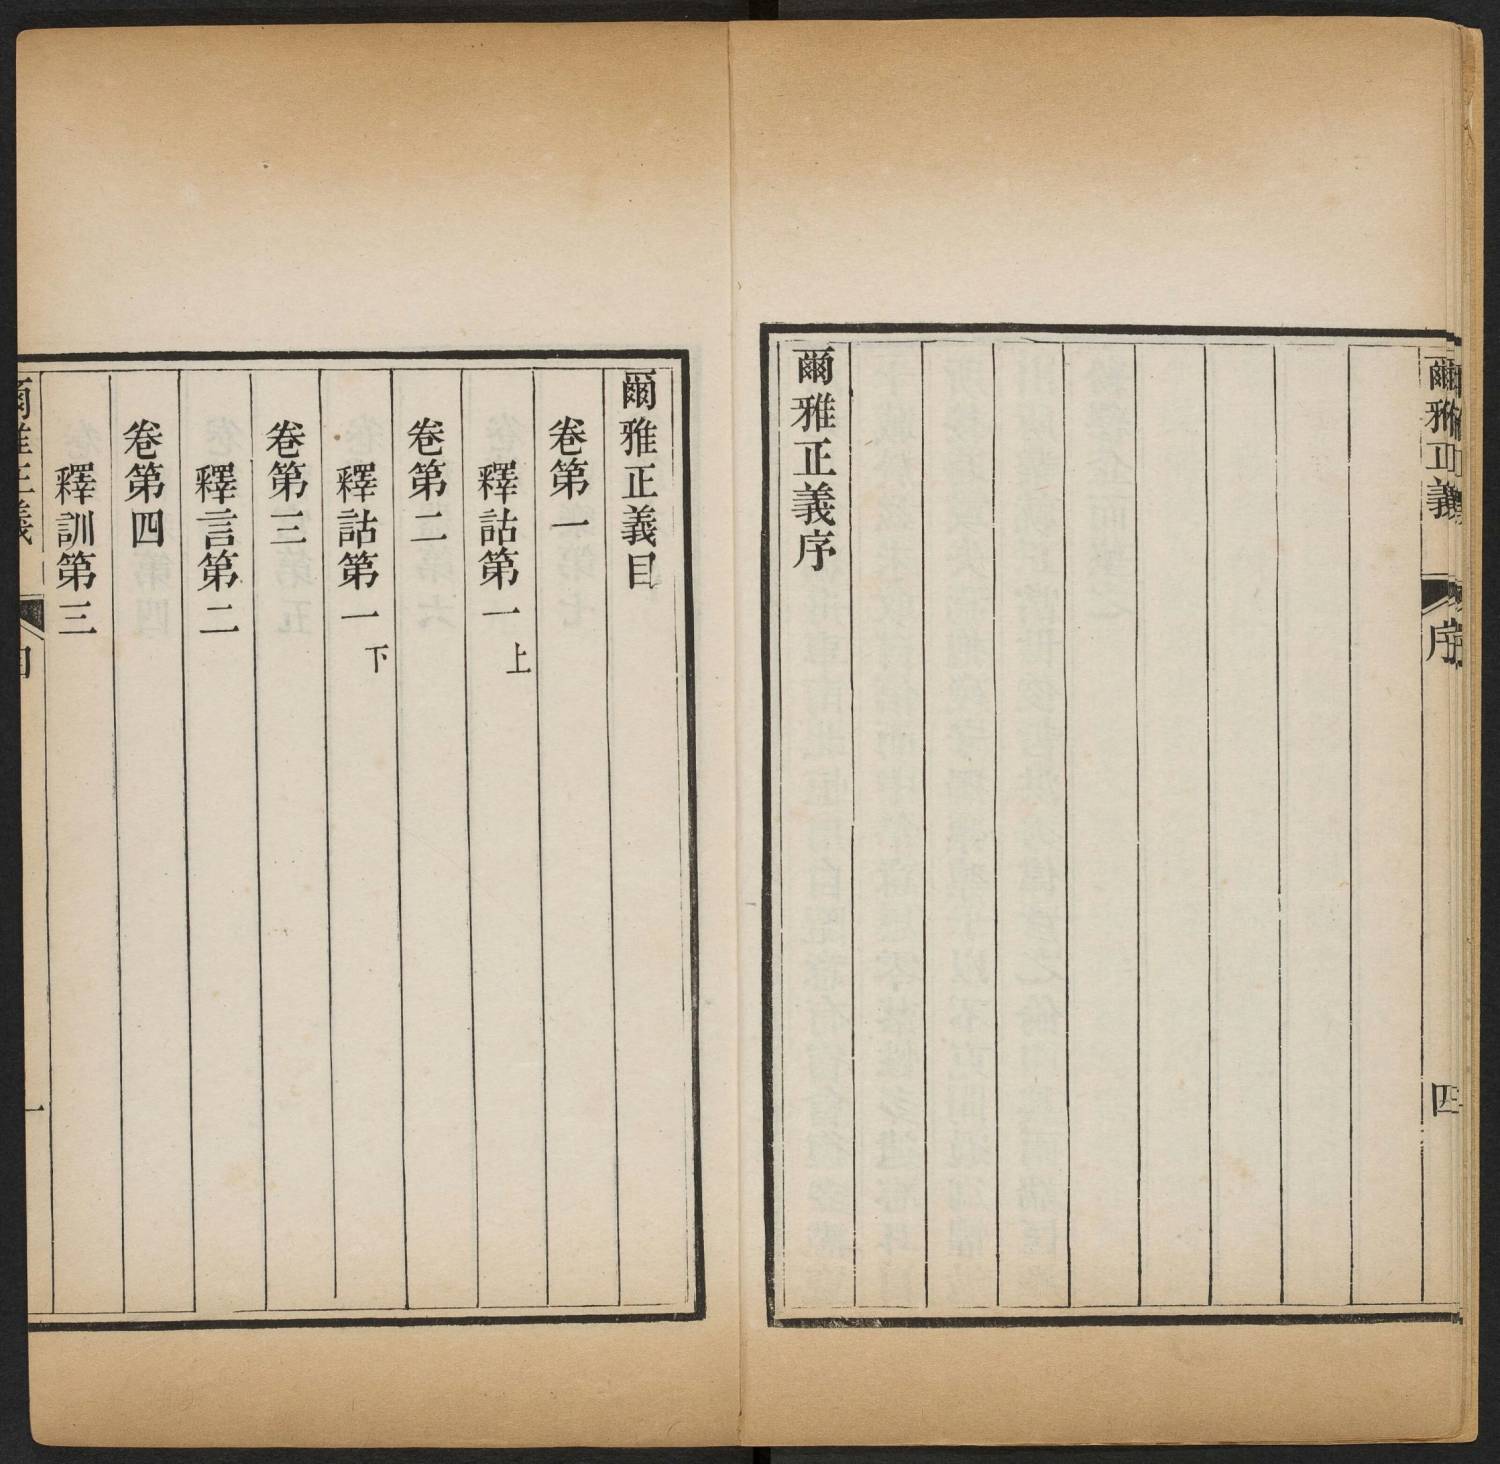 爾雅正義
序
四
爾雅正義序
爾雅正義目
卷第一
釋詁第一上
卷第二
釋詁第一下
卷第三
釋言第二
卷第四
釋訓第三
爾雅正義
目
一